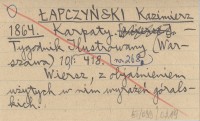 ŁAPCZYŃSKI Kazimierz
1864. Karpaty.
Tygodnik Ilustrowany (War-
szawa) 191: 418. nr 268
Wiersz, z objaśnieniem
użytych w nim wyrazów góral-
skich.